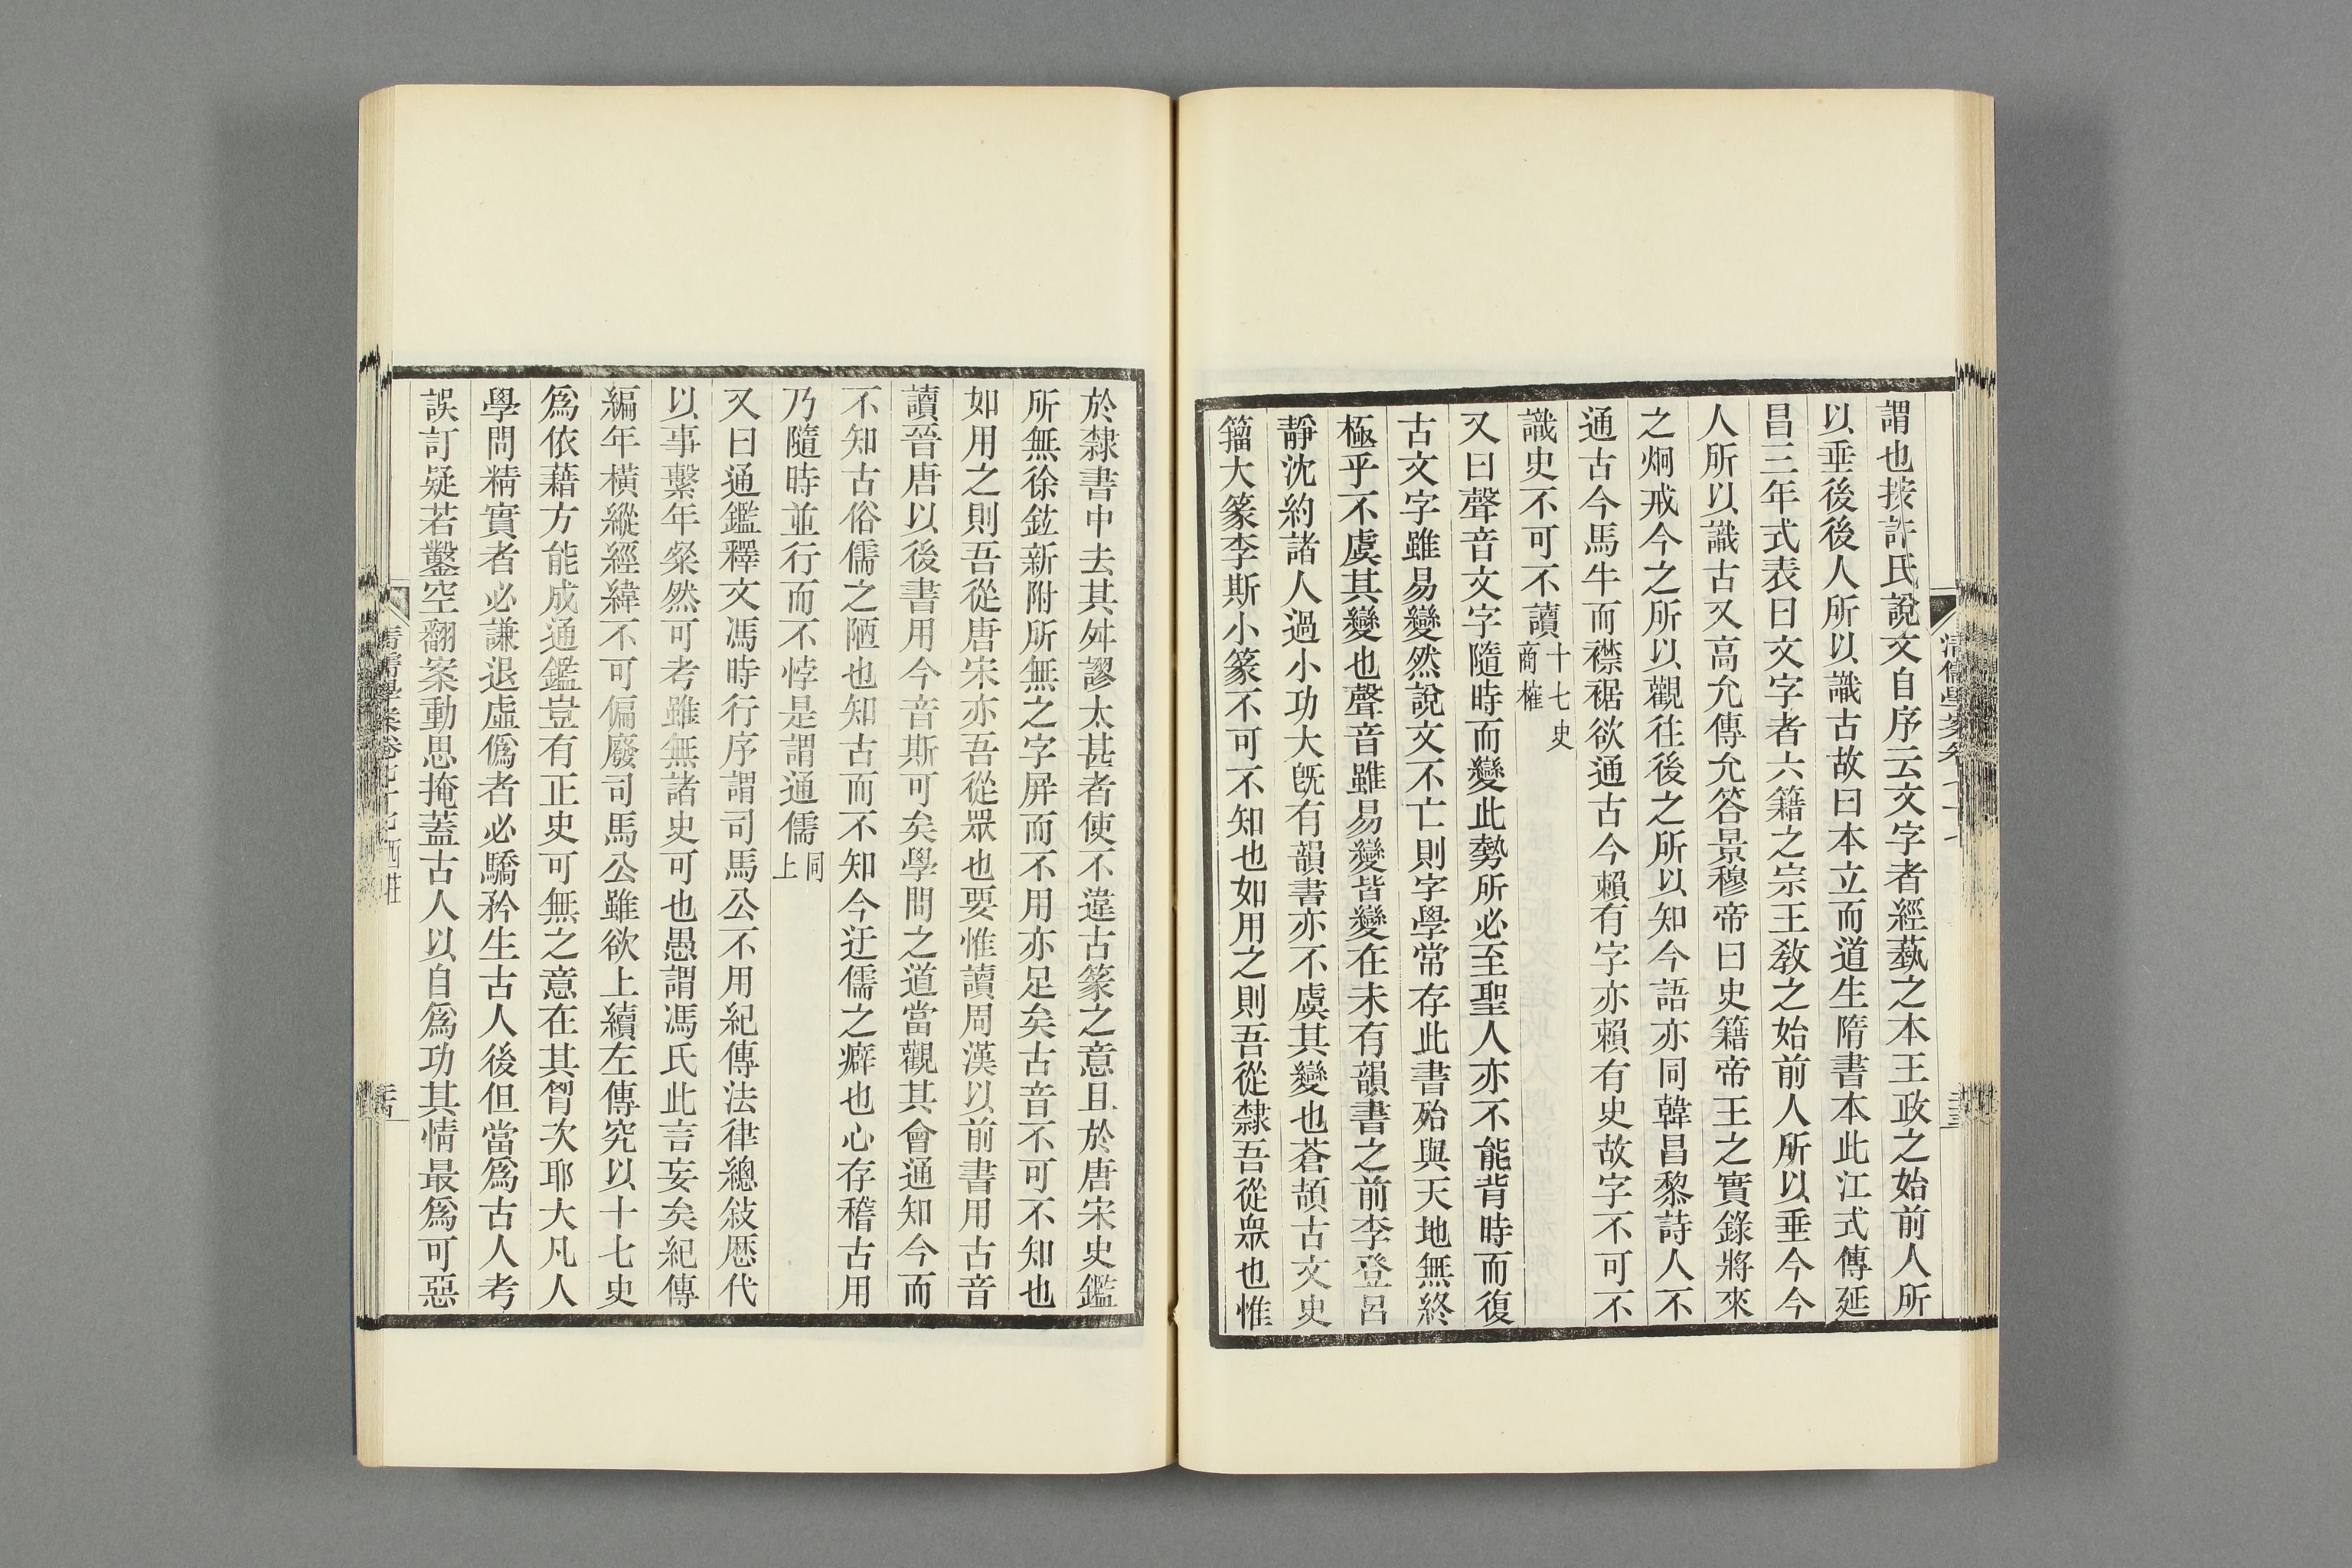 謂也按許氏說文自序云文字者經蓺之本王政之始前人所
以垂後後人所以識古故曰本立而道生隋書本此江式傳延
昌三年式表曰文字者六籍之宗王敎之始前人所以垂今今
人所以識古又高允傳允答景穆帝曰史籍帝王之實錄將來
之炯戒今之所以觀往後之所以知今語亦同韓昌黎詩人不
通古今馬牛而襟裾欲通古今賴有字亦賴有史故字不可不
識史不可不讀十七史商榷
又曰聲音文字隨時而變此勢所必至聖人亦不能背時而復
古文字雖易變然說文不亡則字學常存此書殆與天地無終
極乎不虞其變也聲音雖易變皆變在未有韻書之前李登呂
靜沈約諸人過小功大旣有韻書亦不虞其變也蒼頡古文史
籀大篆李斯小篆不可不知也如用之則吾從隸吾從眾也惟
於隸書中去其舛謬太甚者使不違古篆之意且於唐宋史鑑
所無徐鉉新附所無之字屏而不用亦足矣古音不可不知也
如用之則吾從唐宋亦吾從眾也要惟讀周漢以前書用古音
讀晉唐以後書用今音斯可矣學問之道當觀其會通知今而
不知古俗儒之陋也知古而不知今迂儒之癖也心存稽古用
乃隨時並行而不悖是謂通儒同上
又曰通鑑釋文馮時行序謂司馬公不用紀傳法律總敍歷代
以事繫年粲然可考雖無諸史可也愚謂馮氏此言妄矣紀傳
編年橫縱經緯不可偏廢司馬公雖欲上續左傳究以十七史
爲依藉方能成通鑑豈有正史可無之意在其胷次耶大凡人
學問精實者必謙退虛僞者必驕矜生古人後但當爲古人考
誤訂疑若鑿空翻案動思掩蓋古人以自爲功其情最爲可惡